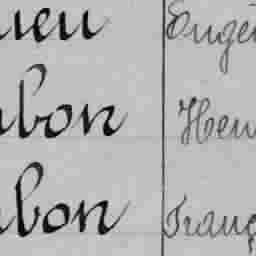 ueu Eugè
bon Hen
bon Franç